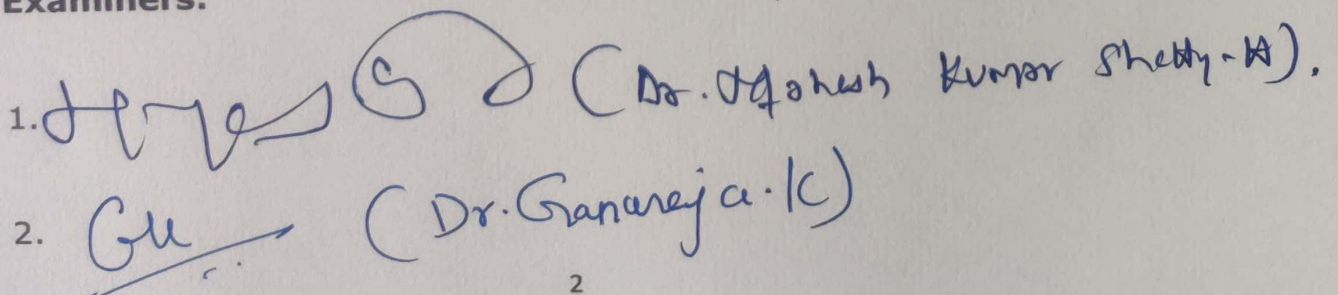 Examiners:
1. (Dr. Mahesh Kumar Shetty-H).
2. (Dr. Ganaraja.K)
2